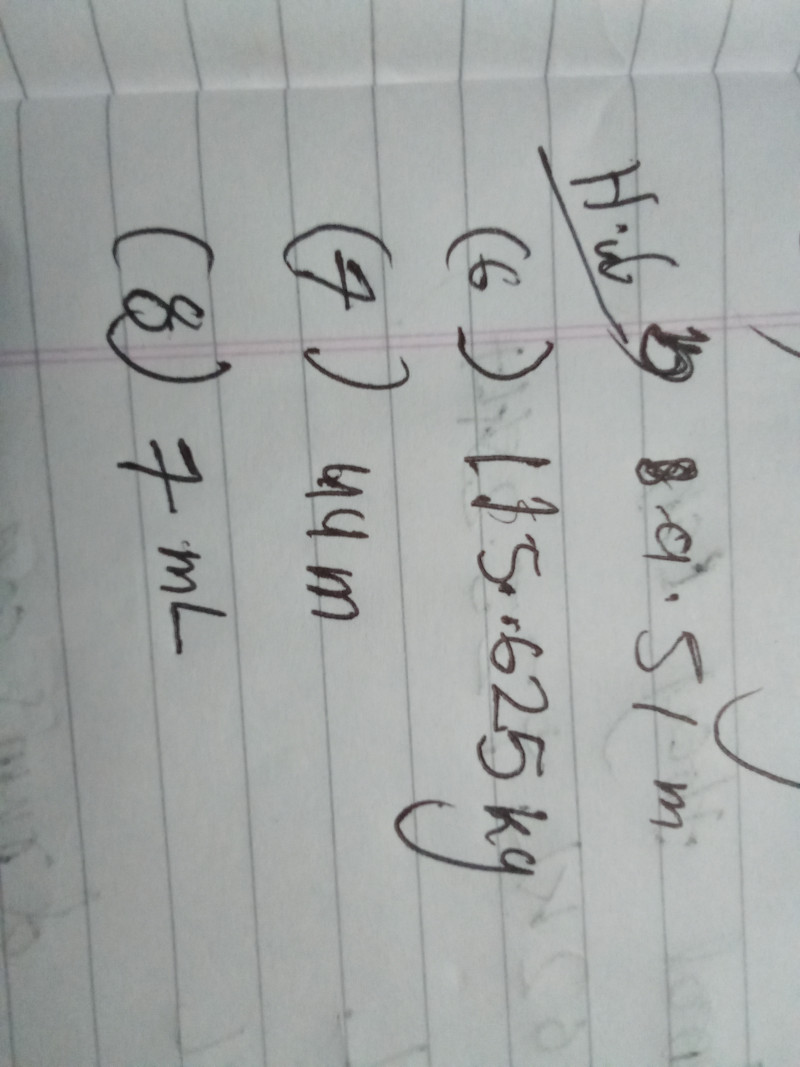 9.51 m
(6) 175.625 kg
(7) 44 m
(8) 7 mL